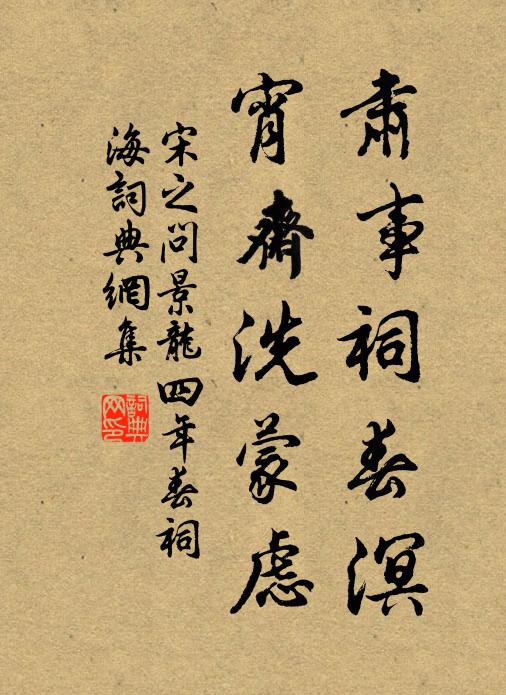 肅事祠春溟
宵齋洗蒙慮
宋之问景龍四年春祠
海詞典網集
詞典
网印